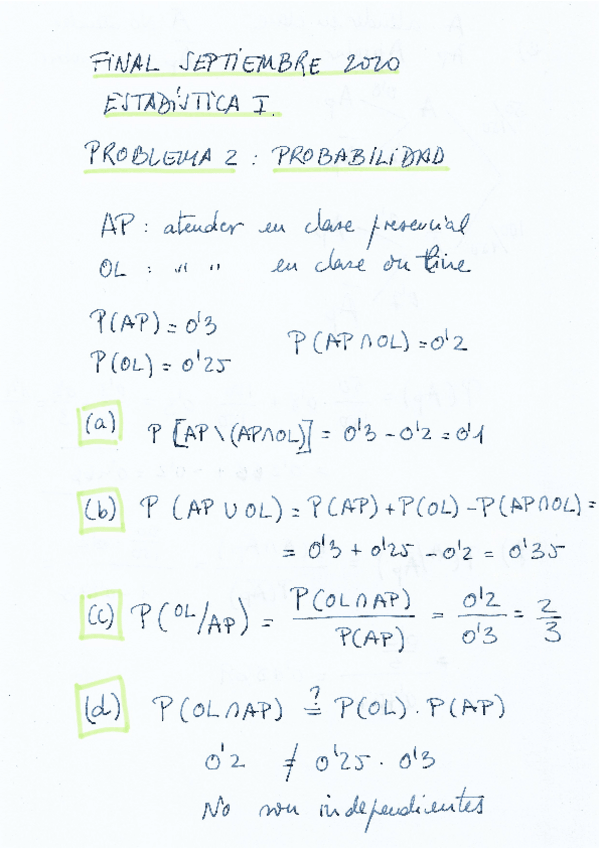 FINAL SEPTIEMBRE 2020
ESTADÍSTICA I.
PROBLEMA 2 : PROBABILIDAD
AP : atender en clase presencial
OL : " " en clase on line
P(AP) = 0'3
P(AP∩OL) = 0'2
P(OL) = 0'25
(a) P [AP\(AP∩OL)] = 0'3 - 0'2 = 0'1
(b) P (AP ∪ OL) = P(AP) + P(OL) - P(AP∩OL) =
= 0'3 + 0'25 - 0'2 = 0'35
(c) P(OL/AP) = P(OL∩AP) / P(AP) = 0'2 / 0'3 = 2/3
(d) P(OL∩AP) ?= P(OL) . P(AP)
0'2 ≠ 0'25 · 0'3
No son independientes